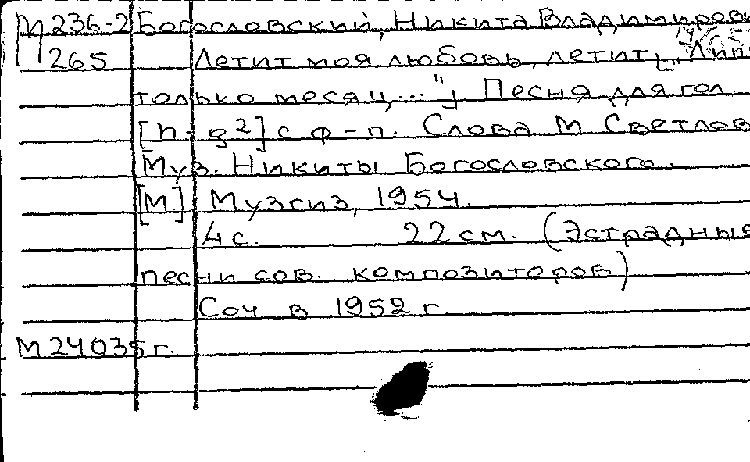 М 236-2 Богословский, Никита Владимиров
265 Летит моя любовь, летит, [„Лип
только месяц..."] Песня для гол.
[h-g²] с ф-п. Слова М Светлов
Муз. Никиты Богословского.
[М] Музгиз, 1954.
4 с. 22 см. (Эстрадные
песни сов. композиторов)
Соч в 1952 г.
М 24035 г.